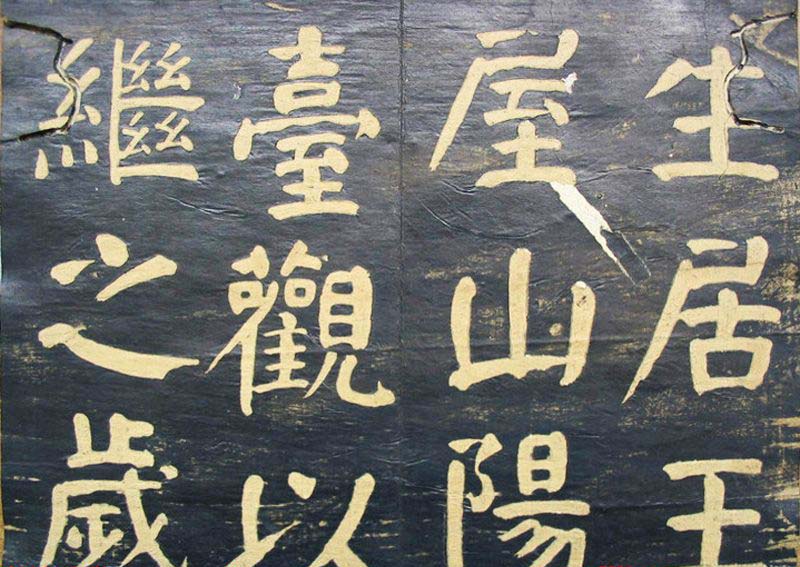 生居王
屋山陽
臺觀以
繼之歲